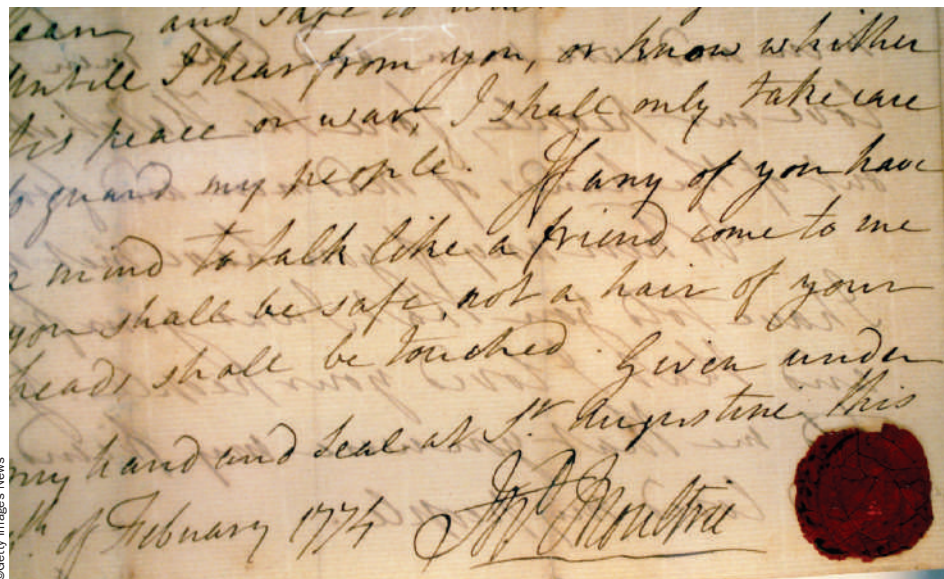 lean, and safe
Untill I hear from you, or know whither
tis peace or war, I shall only take care
to guard my people. If any of you have
a mind to talk like a friend, come to me
you shall be safe, not a hair of your
heads shall be touched. Given under
my hand and seal at St. Augustine this
th. of February 1774 Jno. Moultrie
©Getty Images News